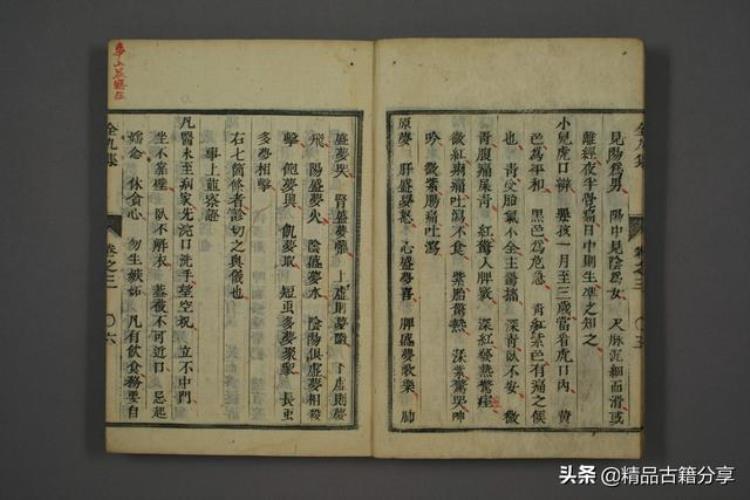 見陽爲男　陽中見陰爲女　尺脉泥細而滑或
離經夜半覺痛日中則生準之知之
小兒虎口辨　嬰孩一月至三歲當看虎口內　黃
色爲平和　黑色爲危急　青紅紫色有病之候
也　青受胎氣不全主驚搐　深青臥不安　微
青腹痛屎青　紅驚入脾
微紅痢痛吐瀉不食　紫胎驚熱
吟　微紫腸痛吐瀉
原夢　肝盛夢怒　心盛夢喜　脾盛夢歌樂　肺
盛夢哭　腎盛夢　上虛則夢墮　下虛則夢
飛　陽盛夢火　陰盛夢水　陰陽俱盛夢相殺
擊　飽夢與　飢夢取　短虫多夢聚衆　長虫
多夢相擊
右七箇條者診切之與儀也
事上䔍察語
凡醫未至病家先浣口洗手望空祝　立不中門
坐不靠壁　臥不解衣　葱薤不可近口　忌起
婬念　休貪心　勿生嫉妬　凡有飲食務要自
全九集
卷之三
〇六
全九集
卷之三
〇五
头条 @精品古籍分享